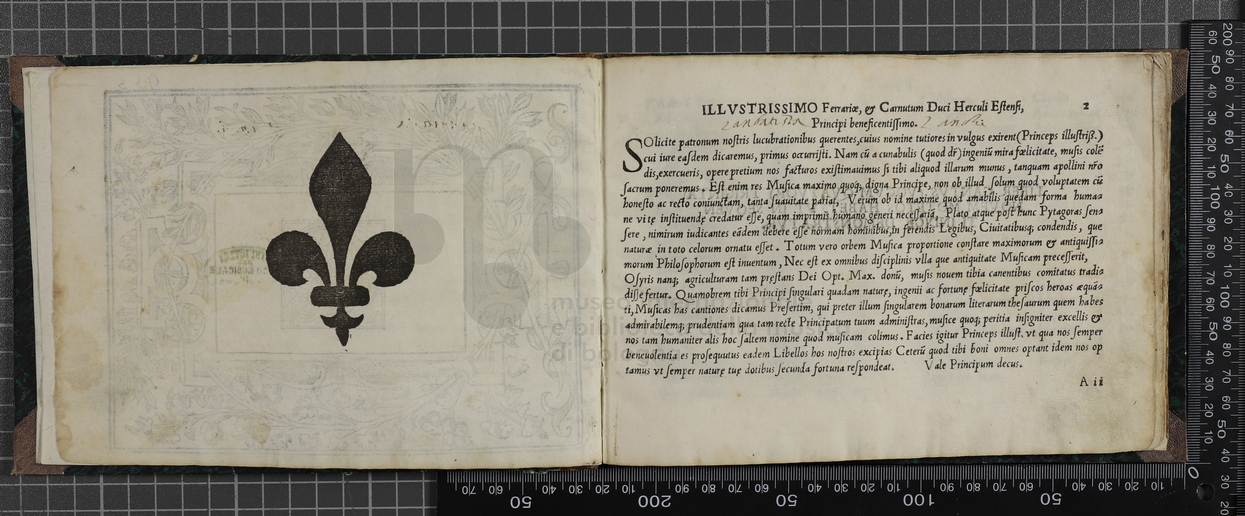 ILLVSTRISSIMO Ferrariæ, & Carnutum Duci Herculi Estensi,
2
Principi beneficentissimo.
SOlicite patronum nostris lucubrationibus querentes, cuius nomine tutiores in vulgus exirent (Princeps illustriss.)
cui iure easdem dicaremus, primus occurristi. Nam cū a cunabulis (quod dr̄) ingeniū mira fœlicitate, musis colē
dis, exercueris, opere pretium nos facturos existimauimus si tibi aliquod illarum munus, tanquam apollini nr̄o
sacrum poneremus. Est enim res Musica maximo quoq; digna Principe, non ob illud solum quod voluptatem cū
honesto ac recto coniunctam, tanta suauitate pariat, Verum ob id maxime quod amabilis quędam forma huma=
ne vitę instituendę credatur esse, quam imprimis humano generi necessariā, Plato atque post hunc Pytagoras sen=
sere, nimirum iudicantes eādem debere esse normam hominibus, in ferendis Legibus, Ciuitatibusq; condendis, que
naturæ in toto celorum ornatu esset. Totum vero orbem Musica proportione constare maximorum & antiquissi=
morum Philosophorum est inuentum, Nec est ex omnibus disciplinis vlla que antiquitate Musicam precesserit,
Osyris nanq; agriculturam tam pręstans Dei Opt. Max. donū, musis nouem tibia canentibus comitatus tradi=
disse fertur. Quamobrem tibi Principi singulari quadam naturę, ingenii ac fortunę fælicitate priscos heroas æquā=
ti, Musicas has cantiones dicamus Presertim, qui preter illum singularem bonarum literarum thesaurum quem habes
admirabilemq; prudentiam qua tam recte Principatum tuum administras, musice quoq; peritia insigniter excellis &
nos tam humaniter alis hoc saltem nomine quod musicam colimus. Facies igitur Princeps illust. vt qua nos semper
beneuolentia es prosequutus eadem Libellos hos nostros excipias Ceterū quod tibi boni omnes optant idem nos op
tamus vt semper naturę tuę dotibus secunda fortuna respondeat. Vale Principum decus.
A ii